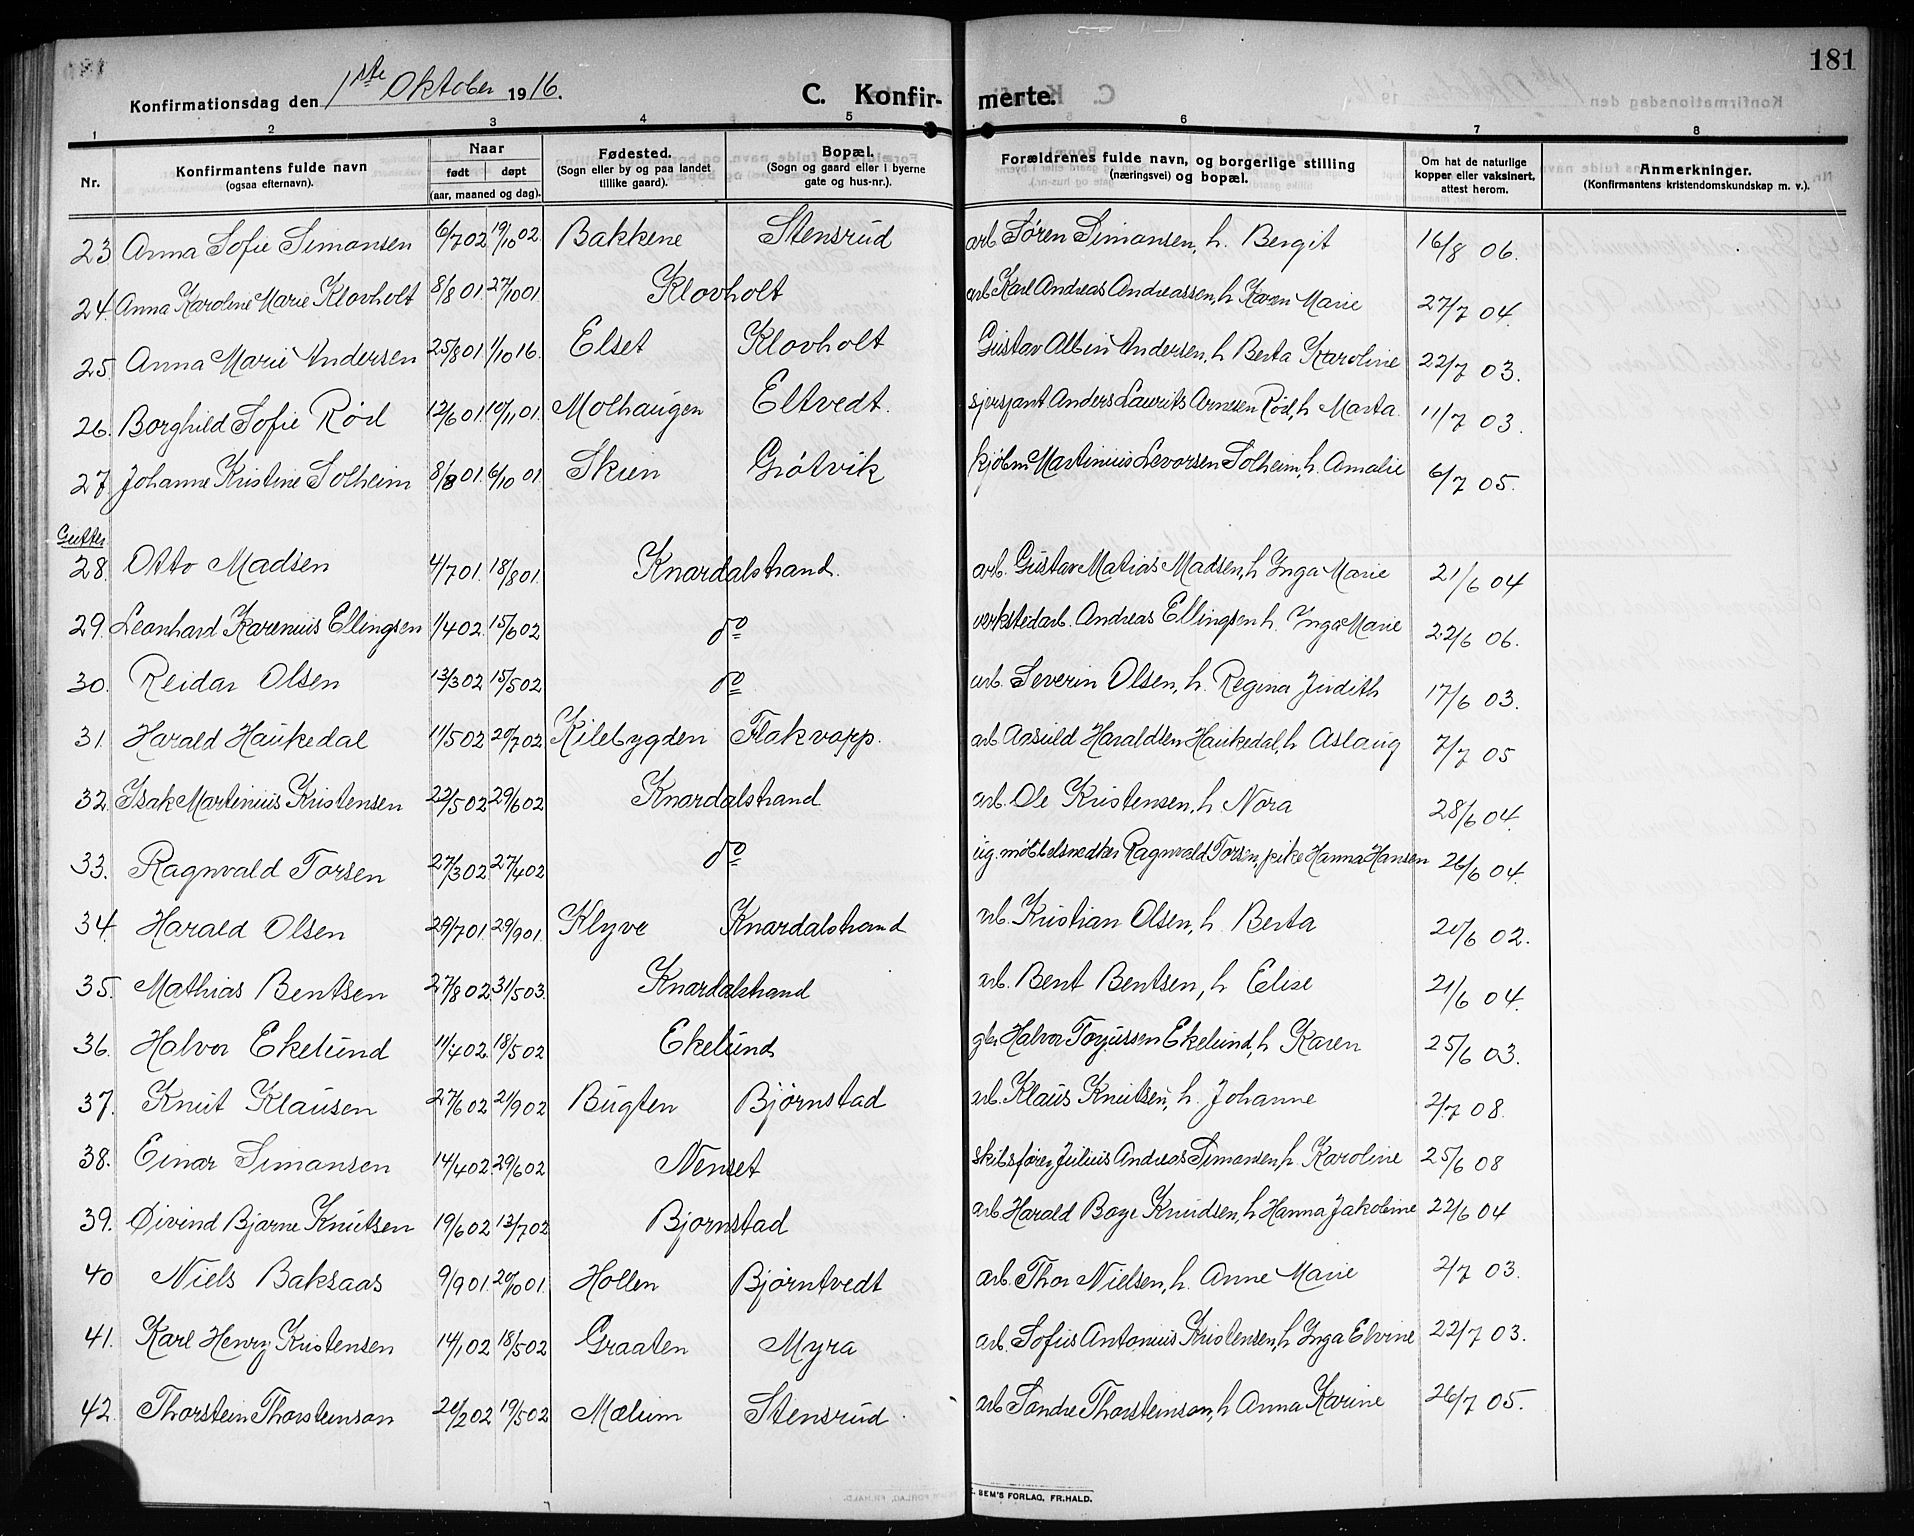 181
Konfirmationsdag den 1ste Oktober 1916.
C. Konfir- merte.
1 2 3 4 5 6 7 8
Nr. Konfirmantens fulde navn (ogsaa efternavn). Naar født døpt (aar, maaned og dag). Fødested. (Sogn eller by og paa landet tillike gaard). Bopæl. (Sogn og gaard eller i byerne gate og hus-nr.). Forældrenes fulde navn, og borgerlige stilling (næringsvei) og bopæl. Om hat de naturlige kopper eller vaksinert, attest herom. Anmerkninger. (Konfirmantens kristendomskundskap m. v.).
23. Anna Sofie Simonsen 6/7 02 19/10 02. Bakkene Stensrud arb. Søren Simonsen, h. Bergit 16/8 06.
24. Anna Karoline Marie Klovholt 8/8 01. 27/10 01 Klovholt arb. Karl Andreas Andreassen, h Karen Marie 27/7 04.
25. Anna Marie Andersen 25/8 01 1/10 16. Elset Klovholt Gustav Albin Andersen, h Berta Karoline 22/7 03.
26. Borghild Sofie Rød 12/6 01. 10/11 01. Molhaugen Eltvedt. sjersjant Anders Laurits Arnesen Rød, h Marta 11/7 03.
27. Johanne Kristine Solheim 8/8 01. 6/10 01. Skien Grøtvik kjøbm. Martinius Levorsen Solheim, h. Amalie 6/7 05.
Gutter.
28. Otto Madsen 4/7 01. 18/8 01. Knardalstrand. arb. Gustav Matias Madsen, h Inga Marie 21/6 04
29. Leonhard Karenius Ellingsen 1/4 02. 15/6 02 do verkstedarb. Andreas Ellingsen h. Inga Marie 22/6 06.
30. Reidar Olsen 13/3 02 15/5 02 do arb. Severin Olsen, h. Regina Judith 17/6 03.
31. Harald Haukedal 11/5 02 20/7 02. Kilebygden Flakvarp. arb. Aasuld Haraldsen Haukedal, h Aslaug 7/7 05
32. Isak Martinius Kristensen 22/5 02 29/6 02 Knardalstrand arb. Ole Kristensen, h Nora 28/6 04.
33. Ragnvald Torsen 27/3 02 27/4 02 do ug. møbbelsnedker Ragnvald Torsen, pike Hanna Hansen 26/6 04.
34. Harald Olsen 29/7 01. 29/9 01. Klyve Knardalstrand arb. Kristian Olsen, h. Berta 20/6 02.
35. Mathias Bentsen 27/8 02. 31/5 03. Knardalstrand arb. Bent Bentsen, h Elise 21/6 04.
36. Halvor Ekelund 11/4 02. 18/5 02 Ekelund gbr Halvor Torjussen Ekelund, h Karen 25/6 03.
37. Knut Klausen 27/6 02 21/9 02 Bugten Bjørnstad arb. Klaus Knutsen, h. Johanne 2/7 08.
38. Einar Simonsen 14/4 02 29/6 02 Nenset skibsfører Julius Andreas Simonsen, h. Karoline 25/6 08
39. Øivind Bjarne Knutsen 19/6 02 13/7 02 Bjornstad arb. Harald Boye Knudsen, h Hanna Jakobine 22/6 04
40 Niels Baksaas 9/9 01. 20/10 01. Hollen Bjørntvedt arb. Thor Nielsen, h. Anne Marie 2/7 03.
41. Karl Henry Kristensen 14/1 02 18/5 02 Graaten Myra arb. Sofus Antonius Kristensen, h Inga Elvine 22/7 03.
42. Thorstein Thorsteinson 20/2 02 19/5 02 Mælum Stensrud. arb. Sondre Thorsteinson, h Anna Karine 26/7 05.
BEM'S FORLAG, FR.HALD.